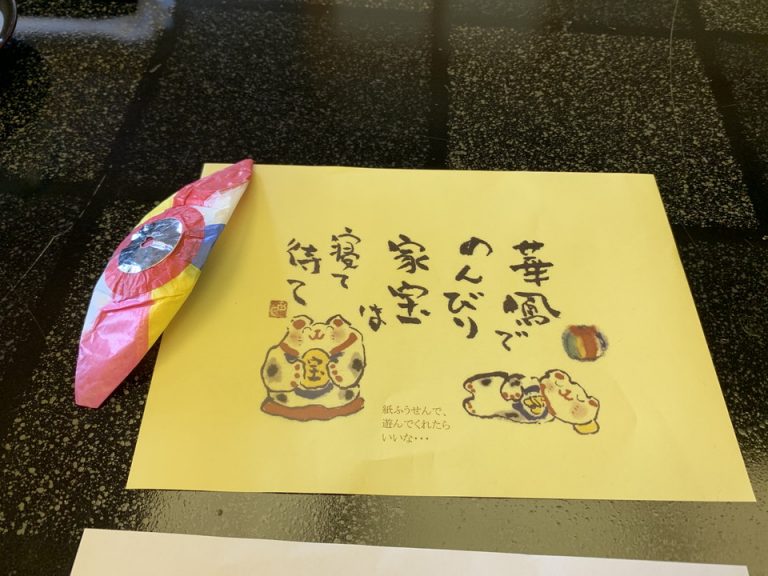 華鳳で
のんびり
家宝
は
寝て
待て
宝
宝
紙ふうせんで、
遊んでくれたら
いいな・・・